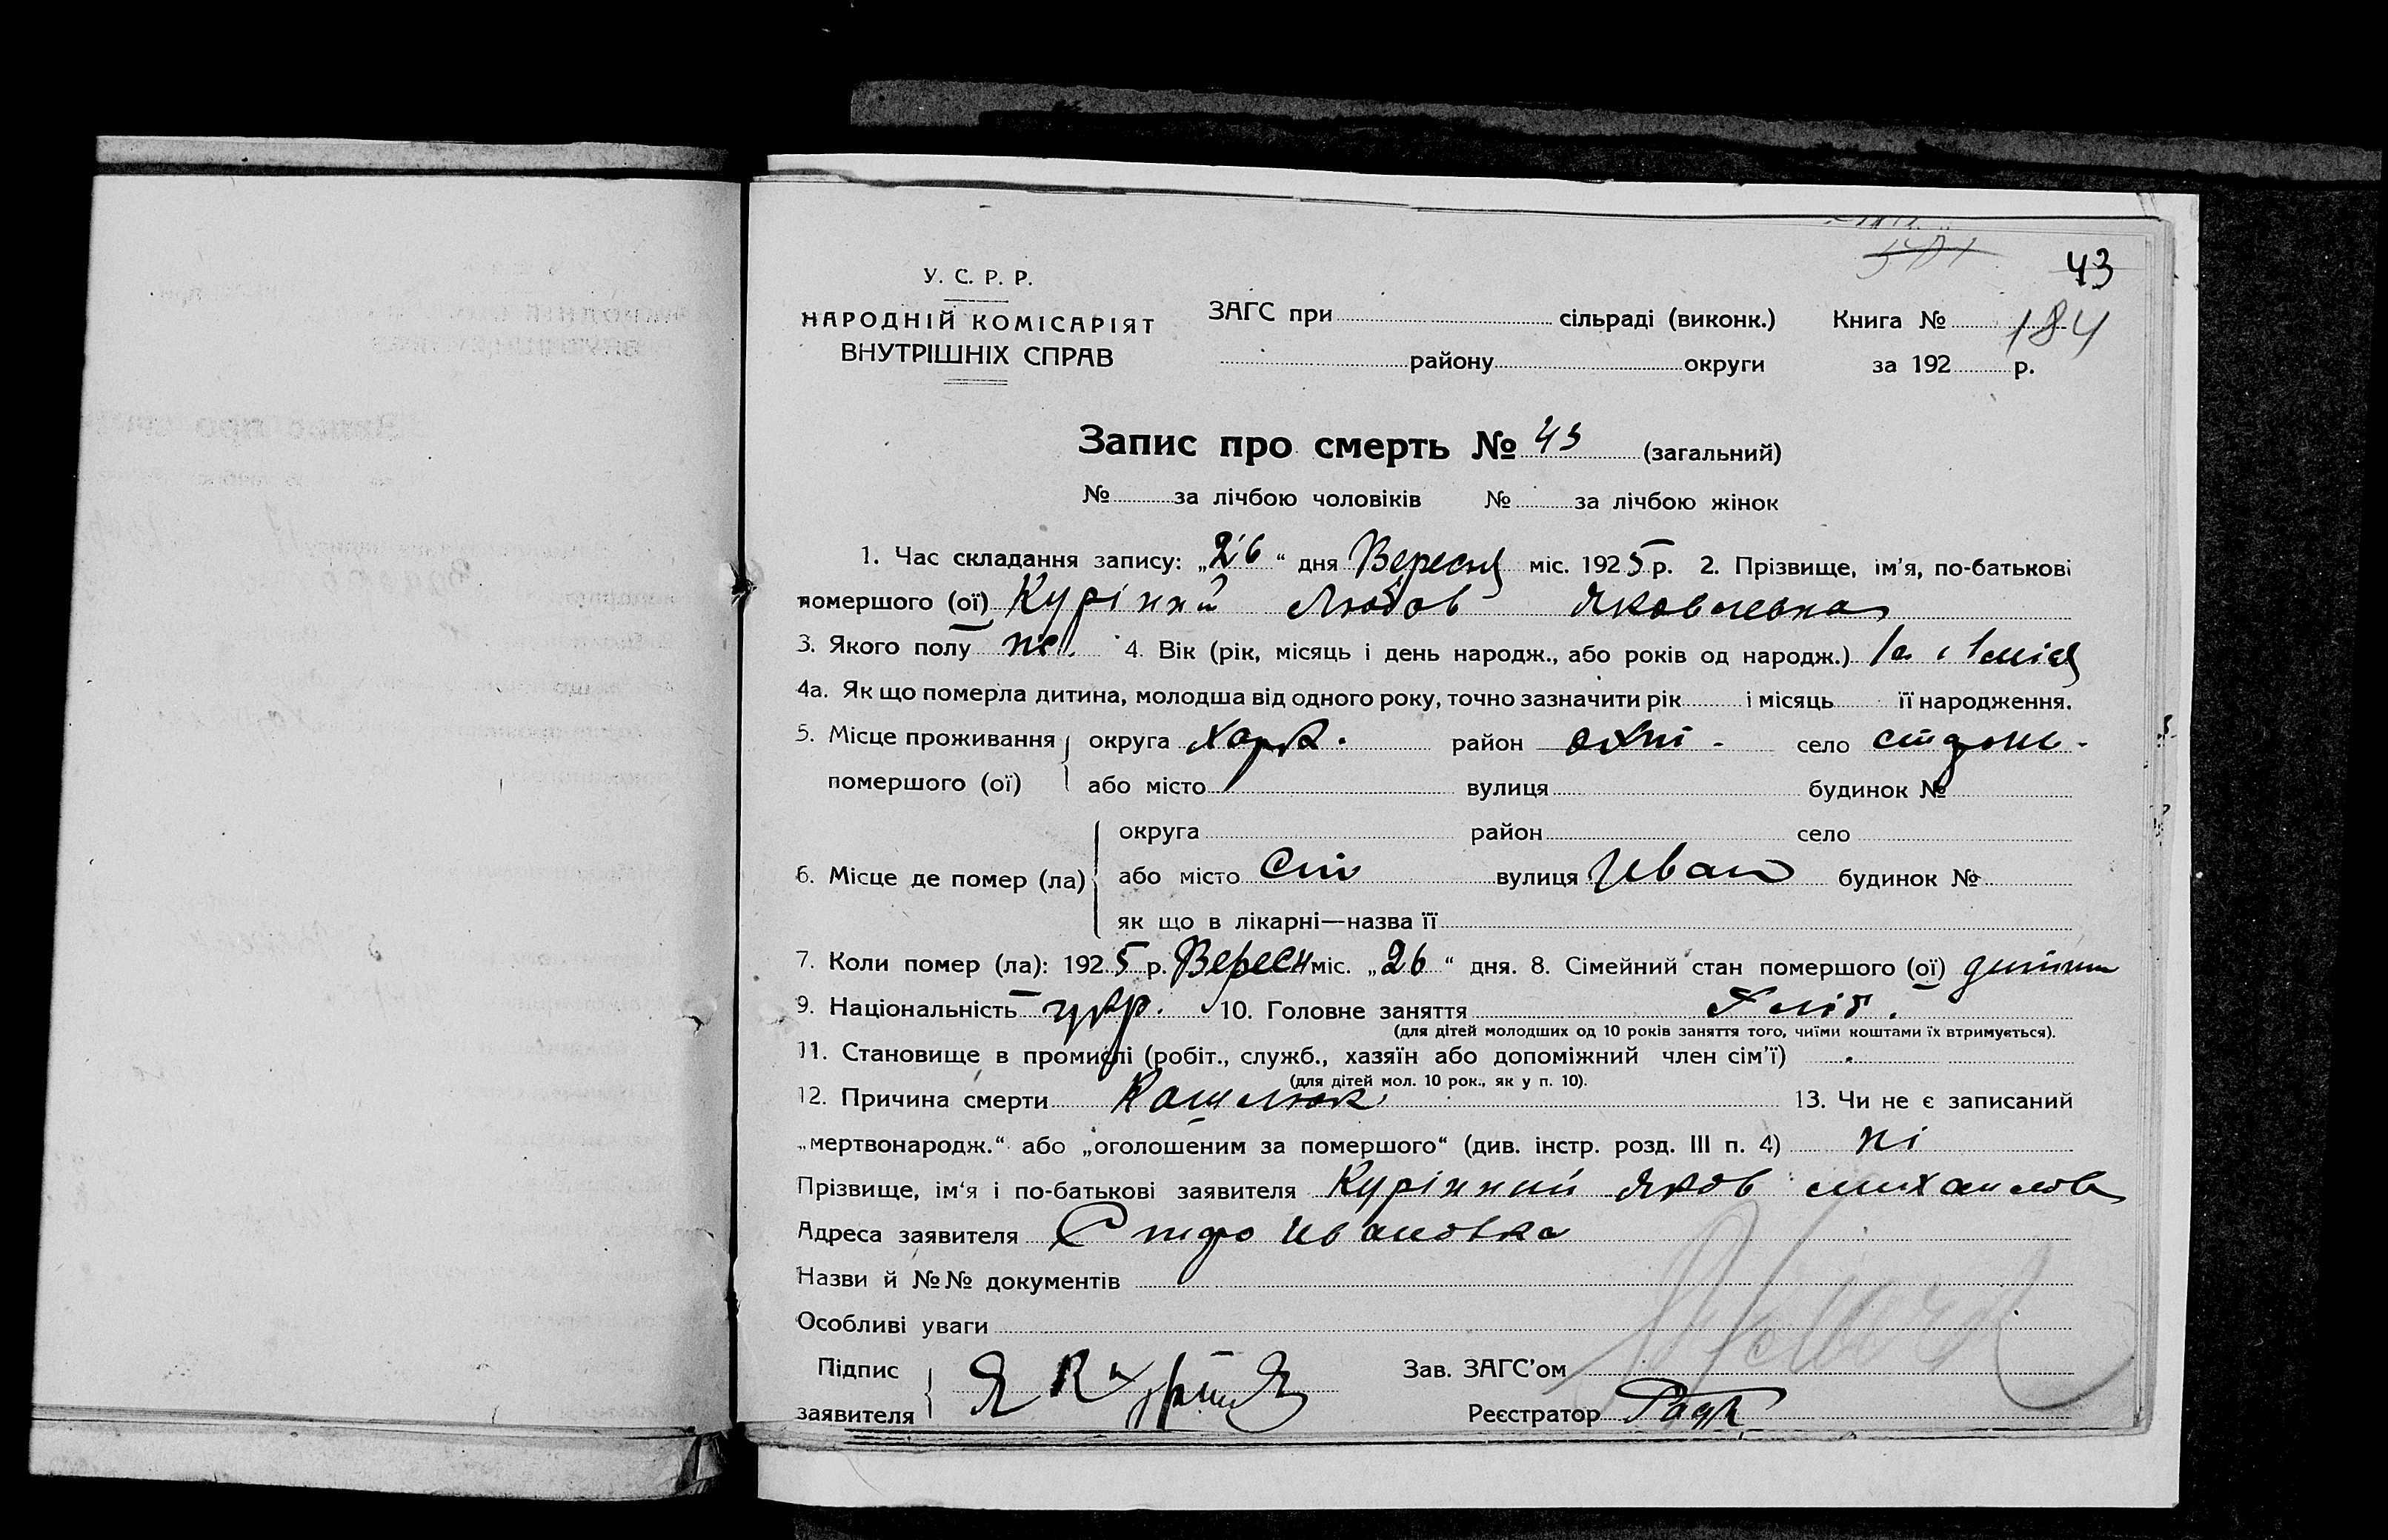 43
У. С. Р. Р.
НАРОДНІЙ КОМІСАРІЯТ
ВНУТРІШНІХ СПРАВ
ЗАГС при сільраді (виконк.) Книга № 184
району округи за 192 р.
Запис про смерть № 43 (загальний)
№ за лічбою чоловіків № за лічбою жінок
1. Час складання запису: „26“ дня Вересня міс. 1925 р. 2. Прізвище, ім'я, по-батькові
помершого (ої) Курінний Любов Яковлевна
3. Якого полу 4. Вік (рік, місяць і день народж., або років од народж.)
4а. Як що померла дитина, молодша від одного року, точно зазначити рік і місяць її народження.
5. Місце проживання округа Харк. район село
помершого (ої) або місто вулиця будинок №
округа район село
6. Місце де помер (ла) або місто Ст вулиця Иван будинок №
як що в лікарні—назва її
7. Коли помер (ла): 1925 р. Вересн міс. „26“ дня. 8. Сімейний стан помершого (ої) дитина
9. Національність укр. 10. Головне заняття Хліб.
(для дітей молодших од 10 років заняття того, чиїми коштами їх втримується).
11. Становище в промислі (робіт., служб., хазяїн або допоміжний член сім'ї)
(для дітей мол. 10 рок., як у п. 10).
12. Причина смерти Кашлюк 13. Чи не є записаний
„мертвонародж.“ або „оголошеним за помершого“ (див. інстр. розд. III п. 4) ні
Прізвище, ім'я і по-батькові заявителя Курінний Яков Михайлов
Адреса заявителя Стар Ивановка
Назви й №№ документів
Особливі уваги
Підпис Зав. ЗАГС'ом
заявителя Я Реєстратор